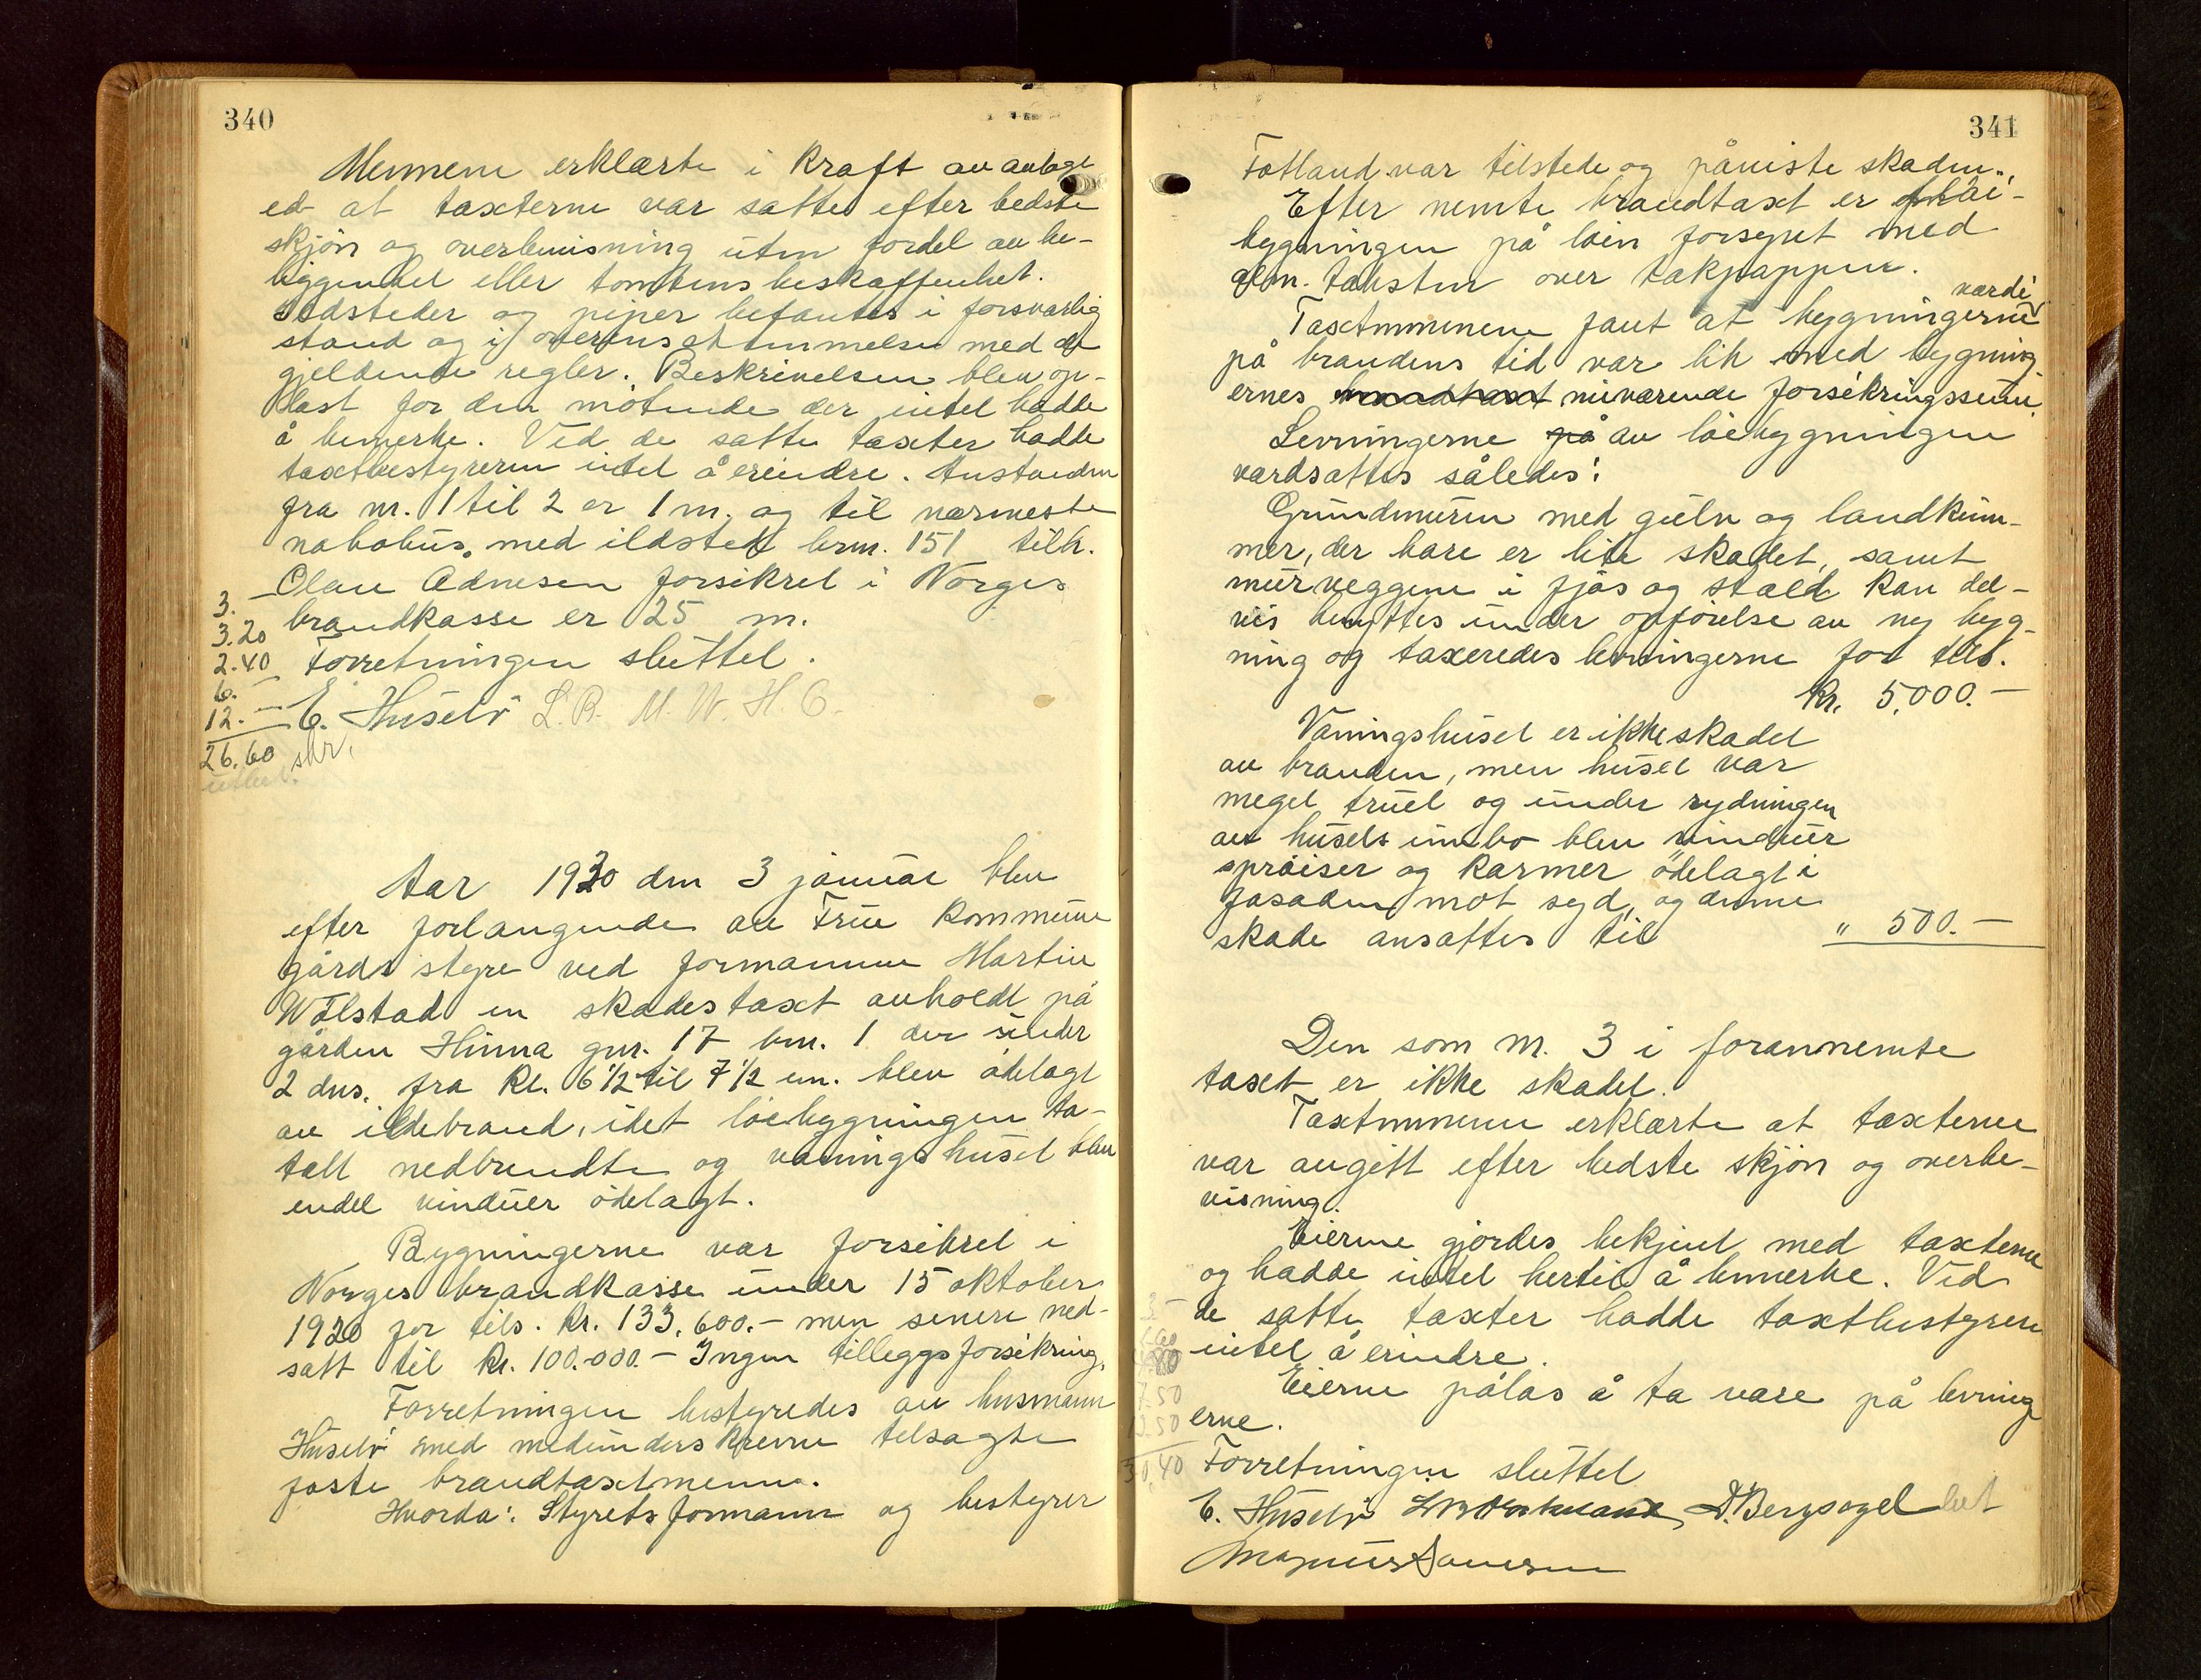 340
Mennene erklærte i kraft av avlagt
ed at taxterne var satte efter bedste
skjön og overbevisning uten fordel av be-
byggendet eller tomtens beskaffenhet.
Ildsteder og piper befantes i forsvarlig
stand og i overensstemmelse med de
gjeldende regler. Beskrivelsen blev op-
læst for den mötende der intet hadde
å bemerke. Ved de satte taxter hadde
taxtbestyreren intet å erindre. Avstanden
fra nr. 1 til 2 er 1 m. og til nærmeste
nabohus med ildsted brnr. 151 tilh.
Olav Ådnesen forsikret i Norges
brandkasse er 25 m.
Forretningen sluttet.
E. Huselö L.B. M.W. H.C.
3.-
3.20
2.40
6.-
12.-
26.60 skr.
utbet.
Aar 1930 den 3 januar blev
efter forlangende av Frue kommune
gårds styre ved formannen Martin
Wölstad en skadestaxt avholdt på
gården Hinna gnr. 17 bnr. 1 der under
2 dns. fra kl. 6 1/2 til 7 1/2 em. blev ödelagt
av ildebrand, idet löebygningen to-
talt nedbrendte og våningshuset blev
endel vinduer ödelagt.
Bygningerne var forsikret i
Norges brandkasse under 15 oktober
1920 for tils. kr. 133.600.- men senere ned-
satt til kr. 100.000.- Ingen tilleggsforsikring.
Forretningen bestyredes av husmann
Huselö med medunderskrevne tilsagte
faste brandtaxtmenn.
Hvorda: Styrets formann og bestyrer
341
Fotland var tilstede og påviste skaden.
Efter nemte brandtaxt er löe-
bygningen på löen forsynet med
alm. taksten over takpappen.
Taxtmennene fant at bygningerne værdi
på brandens tid var lik med bygning
ernes brandtaxt nuværende forsikringssum.
Levningerne på av löebygningen
værdsattes således:
Grundmuren med gulv og landkum-
mer, der bare er lite skadet, samt
murveggene i fjös og stald kan del-
vis benyttes under opförelse av ny byg-
ning og taxeredes levningerne for tils.
Kr. 5.000.-
Våningshuset er ikke skadet
av branden, men huset var
meget truet og under rydningen
av husets innbo blev vinduer
sprosser og karmer ödelagt i
fasaden mot syd, og denne
skade ansattes til " 500.-
Den som nr. 3 i forannemte
taxt er ikke skadet.
Taxtmennene erklærte at taxterne
var avgitt efter bedste skjön og overbe-
visning.
Eierne gjordes bekjent med taxterne
og hadde intet hertil å bemerke. Ved
de satte taxter hadde taxtbestyreren
intet å erindre.
Eierne pålas å ta vare på levning
erne.
Forretningen sluttet
E. Huselö D. Bergsagel bet
Magnus
7.50
12.50
30.40